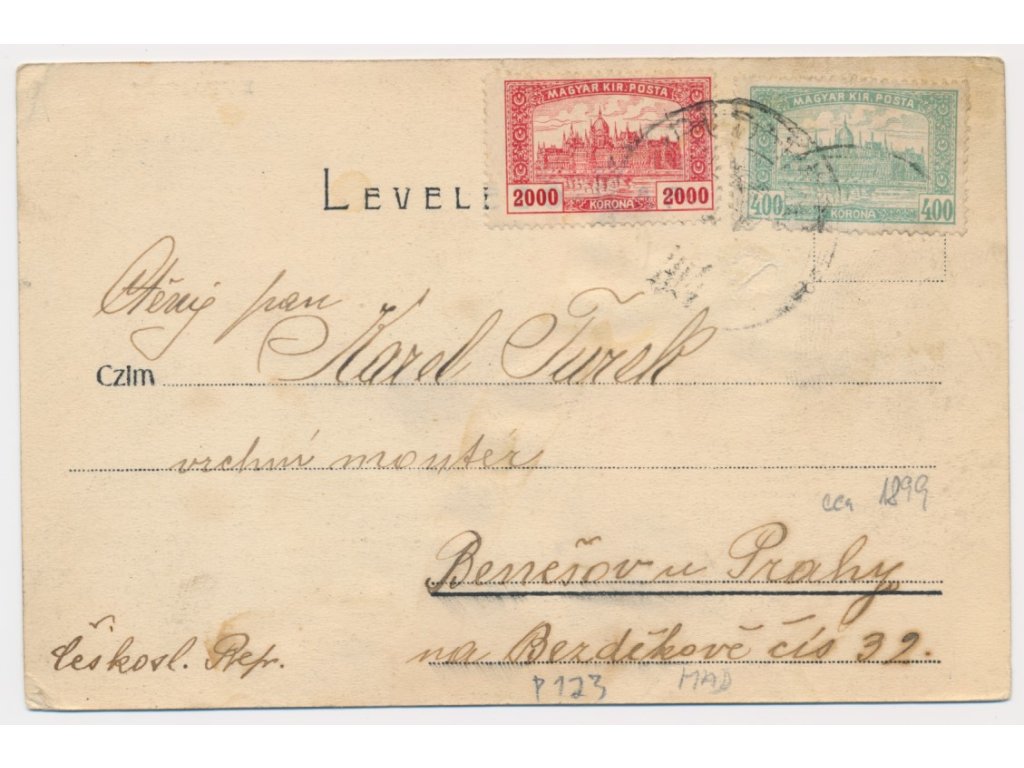 MAGYAR KIR. POSTA
2000 KORONA 2000
MAGYAR KIR. POSTA
400 KORONA 400
LEVELE
pan Karel Turek
Czim
vrchní montér
cca 1899
Benešov u Prahy
na Bezděkově čís 32.
Českosl. Rep.
P123 MAD